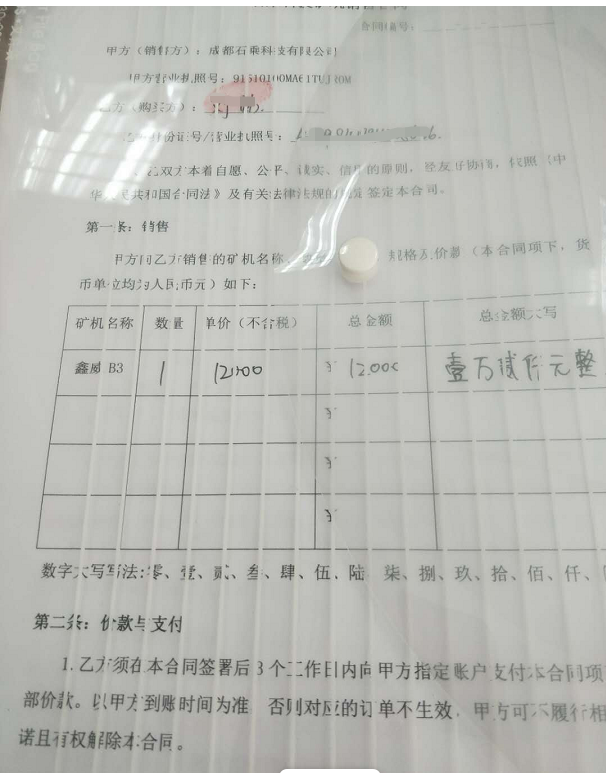 合同编号：
甲方（销售方）：成都石乘科技有限公司
甲方营业执照号：
乙方（购买方）：
身份证号/营业执照号：
乙双方本着自愿、公平、诚实、信用的原则，经友好协商，依照《中
华人民共和国合同法》及有关法律法规的规定签定本合同。
第一条：销售
甲方向乙方销售的矿机名称、 规格及价款（本合同项下，货
币单位均为人民币元）如下：
矿机名称 数量 单价（不含税） 总金额 总金额大写
鑫威 B3 1 12000 ¥ 12000 壹万贰仟元整
¥
¥
¥
数字大写写法:零、壹、贰、叁、肆、伍、陆 柒、捌、玖、拾、佰、仟、
第二条：价款与支付
1.乙方须在本合同签署后 3 个工作日内向甲方指定账户支付本合同项
部价款。以甲方到账时间为准 否则对应的订单不生效，甲方可不履行相
诺且有权解除本合同。